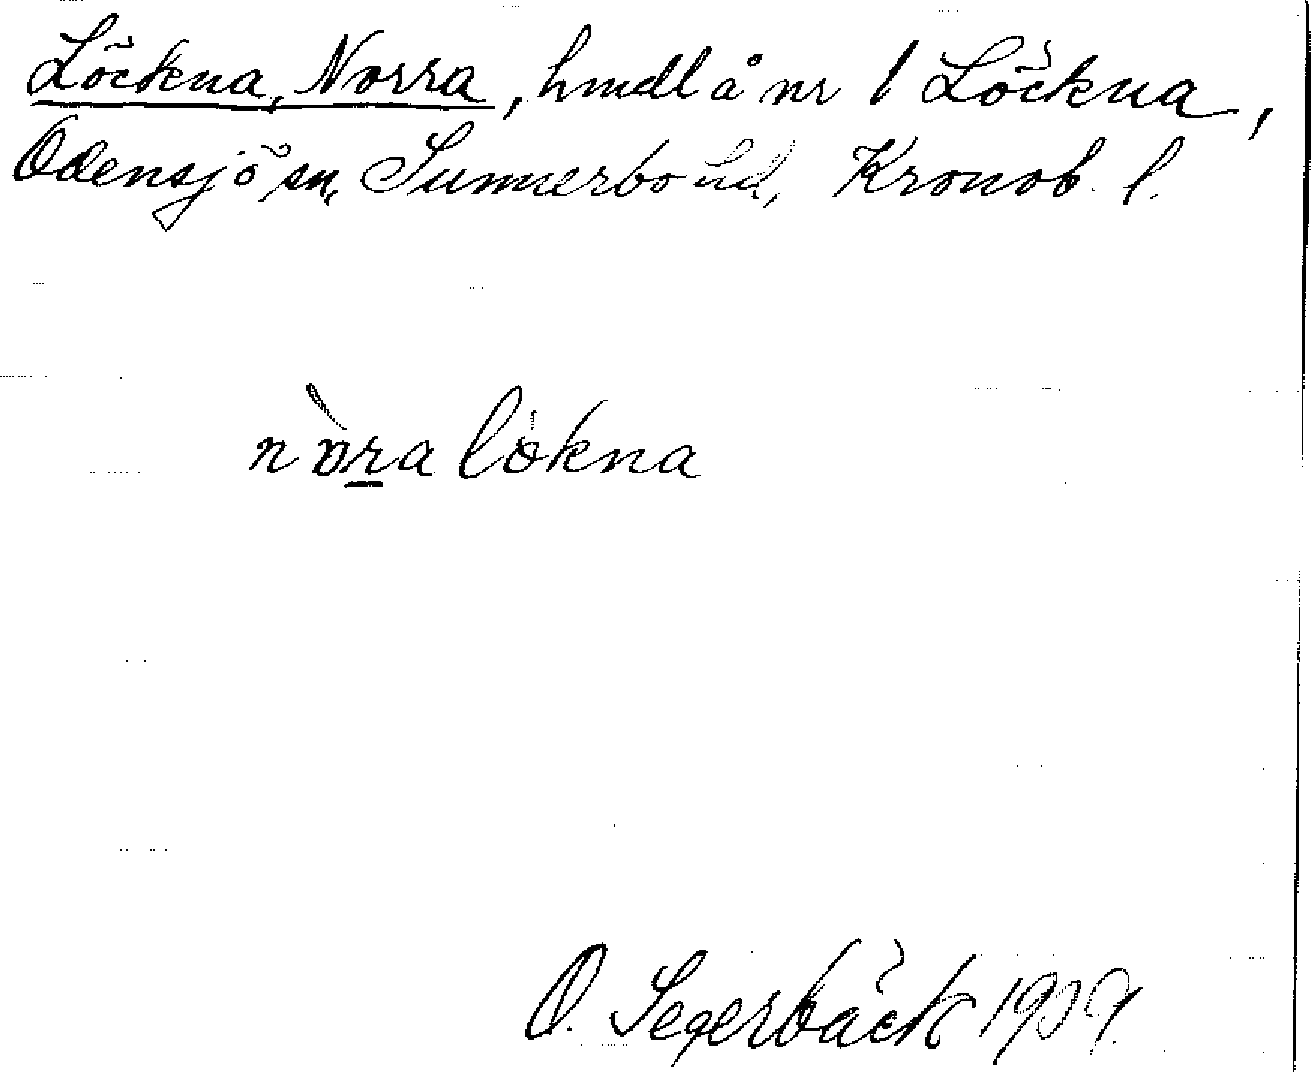 Löckna, Norra, hmdl å nr 1 Löckna,
Odensjö sn, Sunnerbo hd, Kronob. l.
nòra lökna
O. Segerbäck 1929.